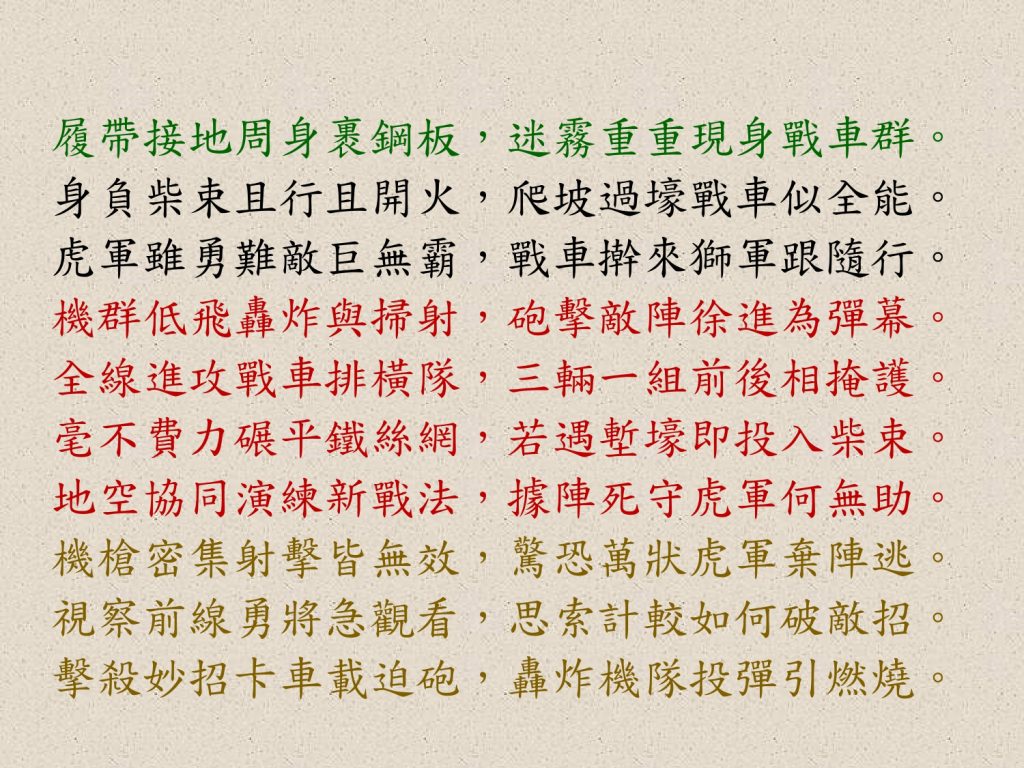 履帶接地周身裹鋼板，迷霧重重現身戰車群。
身負柴束且行且開火，爬坡過壕戰車似全能。
虎軍雖勇難敵巨無霸，戰車擀來獅軍跟隨行。
機群低飛轟炸與掃射，砲擊敵陣徐進為彈幕。
全線進攻戰車排橫隊，三輛一組前後相掩護。
毫不費力碾平鐵絲網，若遇塹壕即投入柴束。
地空協同演練新戰法，據陣死守虎軍何無助。
機槍密集射擊皆無效，驚恐萬狀虎軍棄陣逃。
視察前線勇將急觀看，思索計較如何破敵招。
擊殺妙招卡車載迫砲，轟炸機隊投彈引燃燒。